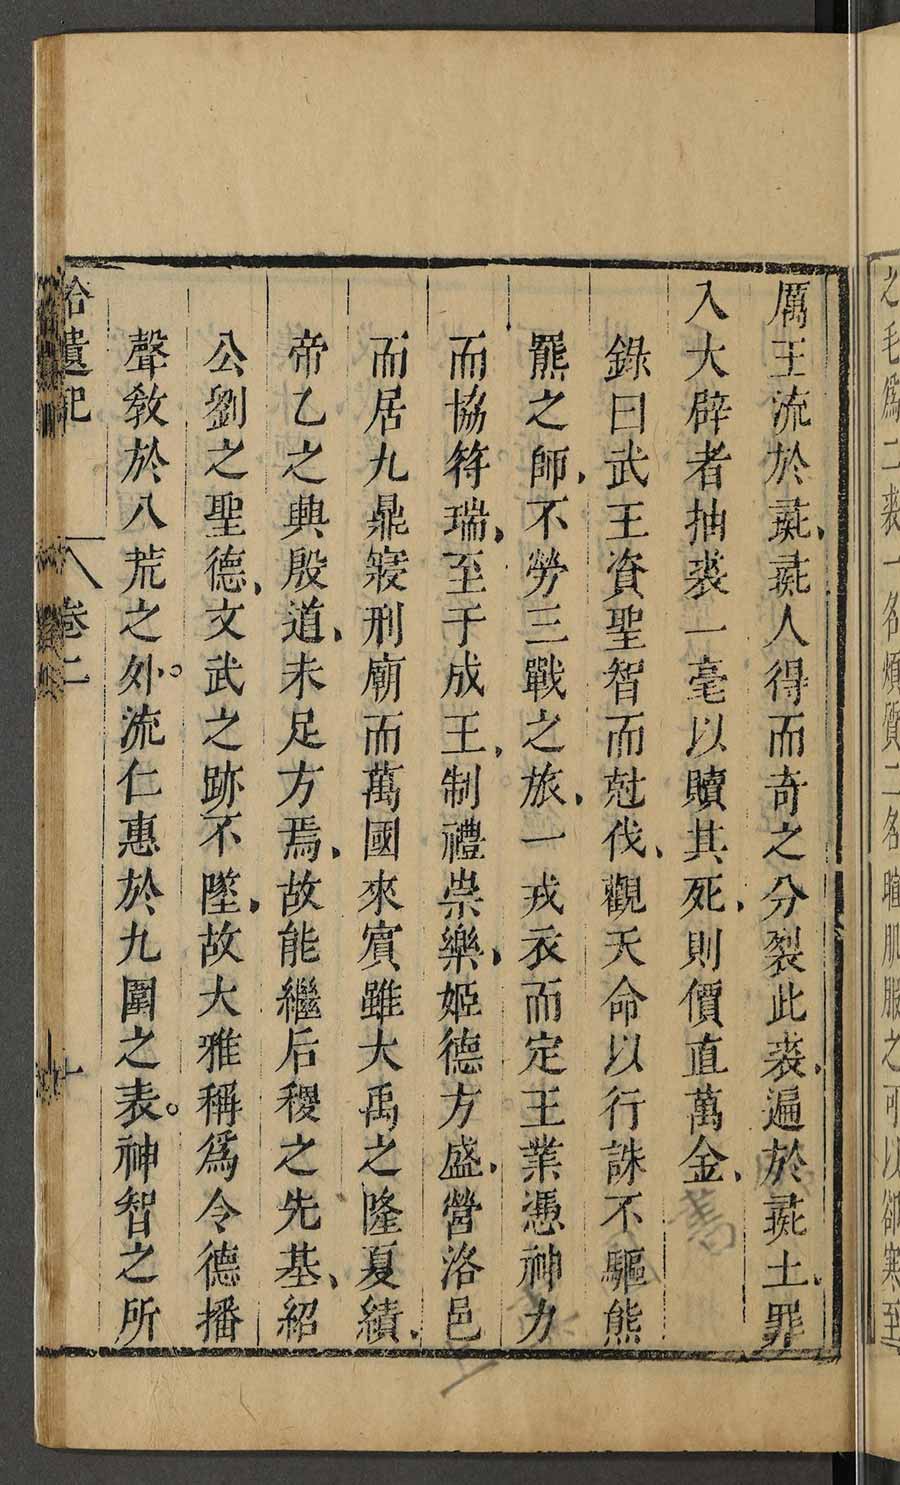 之毛爲二裘一名煩質二名暄肌服之可以卻寒至
厲王流於彘、彘人得而奇之分裂此裘、遍於彘土、罪
入大辟者抽裘一毫以贖其死、則價直萬金、
錄曰武王資聖智而尅伐、觀天命以行誅不驅熊
羆之師、不勞三戰之旅、一戎衣而定王業憑神力
而協符瑞、至于成王、制禮崇樂、姬德方盛、營洛邑
而居九鼎寢刑廟而萬國來賓雖大禹之隆夏績、
帝乙之興殷道、未足方焉、故能繼后稷之先基、紹
公劉之聖德、文武之跡不墜、故大雅稱爲令德播
聲教於八荒之外。流仁惠於九圍之表。神智之所
拾遺記 卷二 十